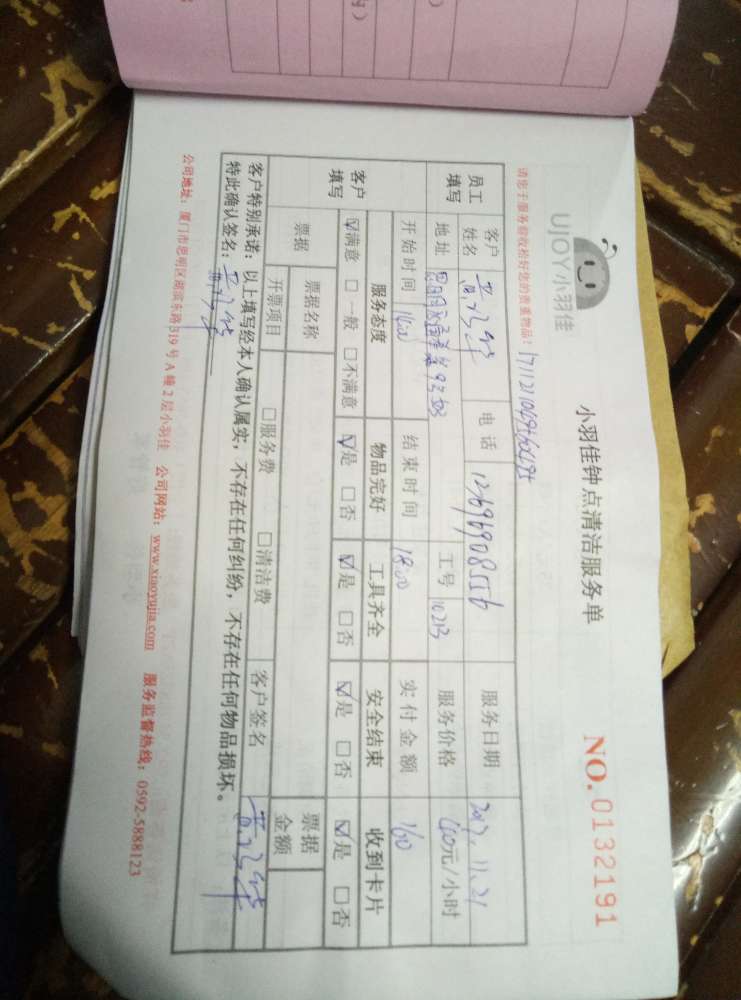 UJOY小羽佳
小羽佳钟点清洁服务单
NO.0132191
请您于服务前收拾好您的贵重物品!
员工填写 客户姓名 电话 服务日期 2017.11.21
地址 工号 10213 服务价格 40元/小时
开始时间 14:00 结束时间 18:00 实付金额 160
客户填写 服务态度 物品完好 工具齐全 安全结束 收到卡片
☑满意 □一般 □不满意 ☑是 □否 ☑是 □否 ☑是 □否 ☑是 □否
票据 票据名称 票据金额
开票项目 □服务费 □清洁费 客户签名
客户特别承诺:以上填写经本人确认属实,不存在任何纠纷,不存在任何物品损坏。
特此确认签名:
公司地址:厦门市思明区湖滨东路319号A幢2层小羽佳 公司网站:www.xiaoyujia.com 服务监督热线:0592-5888123